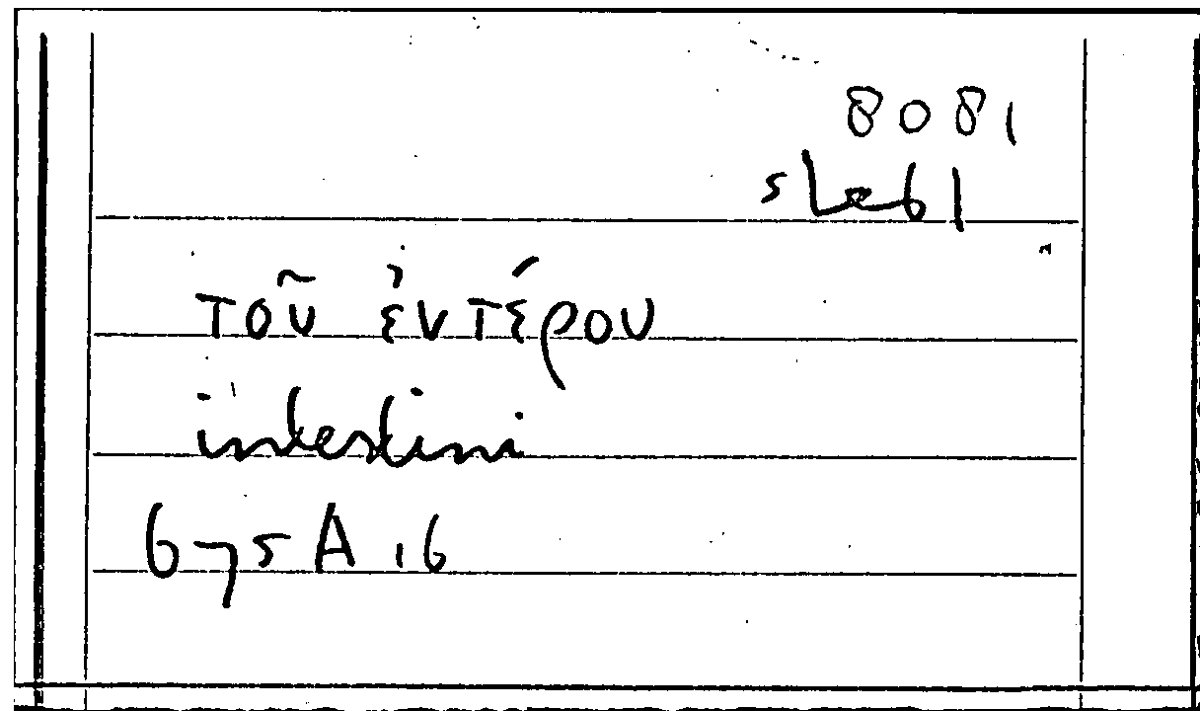 8081
τοῦ ἐντέρου
intestini
675A16